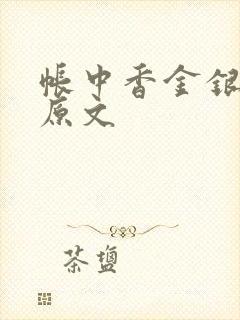 帐中香金银
原文
茶盐